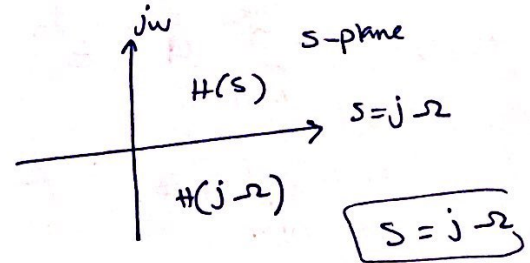 jω
s-plane
H(s)
s=jΩ
H(jΩ)
s = jΩ